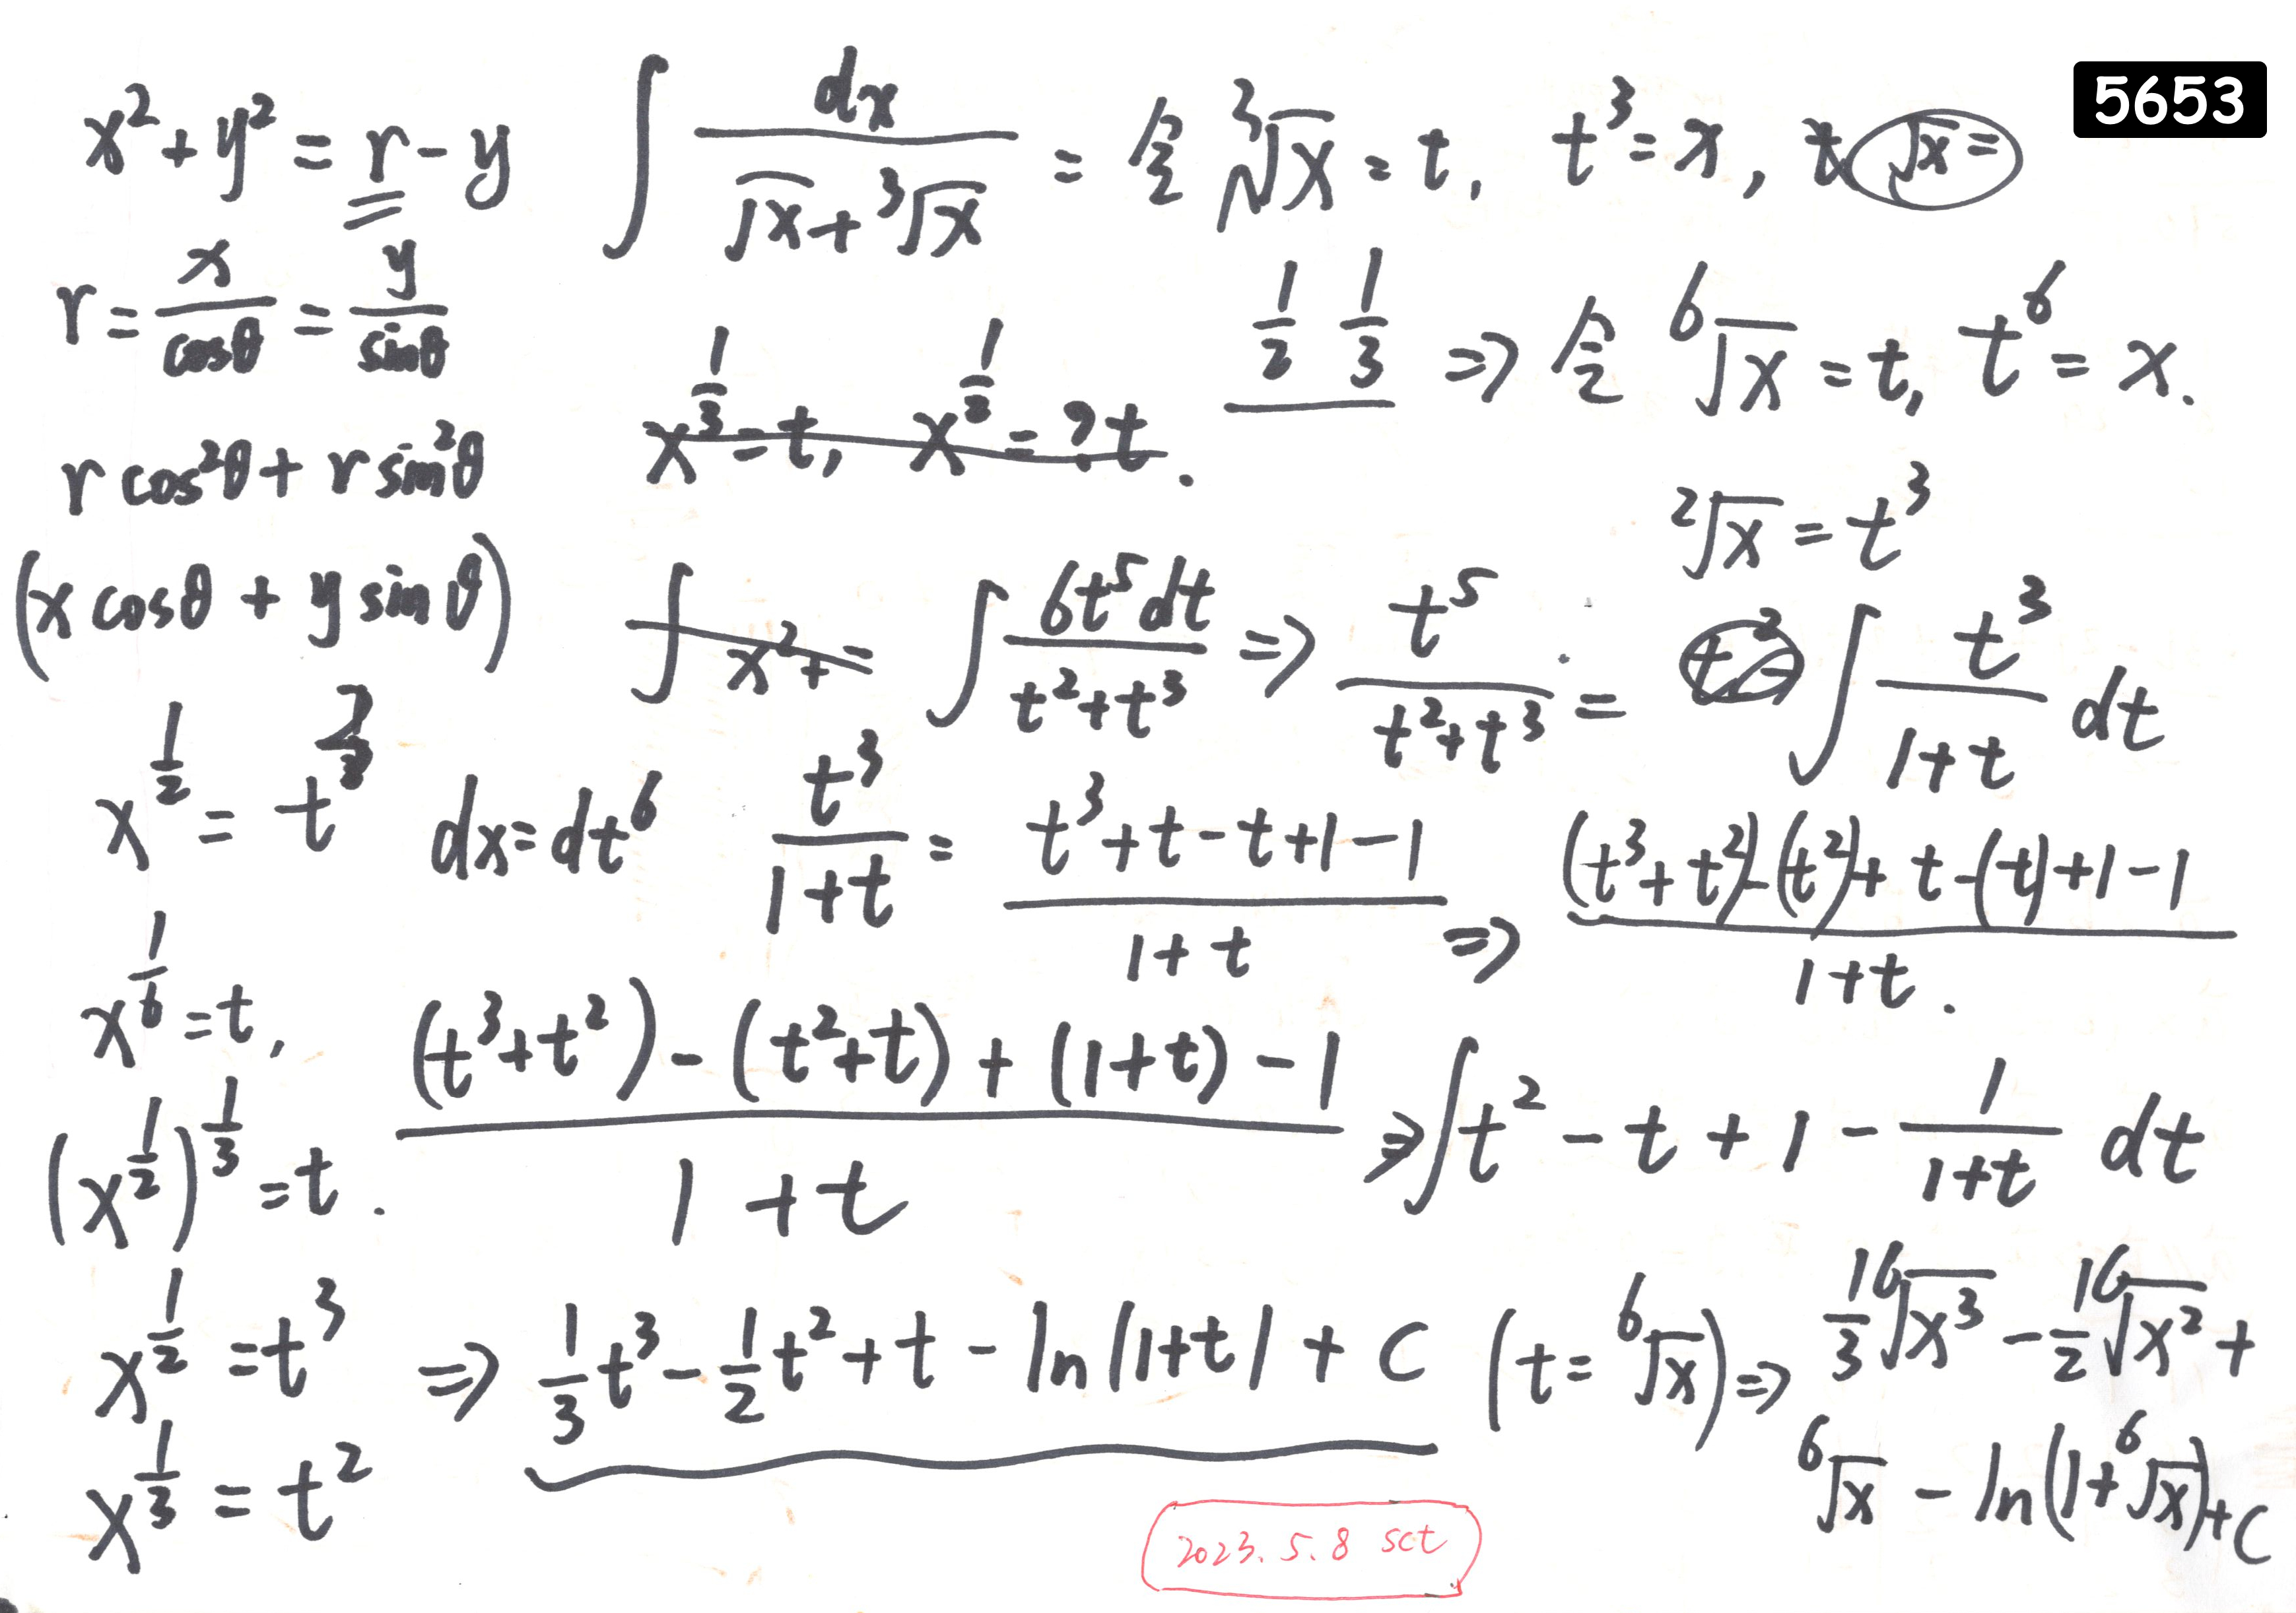 5653
x² + y² = r - y
r = x/cosθ = y/sinθ
r cos²θ + r sin²θ
(x cosθ + y sinθ)
x^(1/2) = t
x^(1/6) = t,
(x^(1/2))^(1/3) = t.
x^(1/2) = t³
x^(1/3) = t²
∫ dx/(√x + ³√x) = 令 ³√x = t, t³ = x, √x =
x^(1/3) = t, x^(1/2) = ? t.
1/2 1/3 ⇒ 令 ⁶√x = t, t⁶ = x.
²√x = t³
∫ x² + = ∫ 6t⁵dt/(t² + t³) ⇒ t⁵/(t² + t³) = t² ∫ t³/(1+t) dt
dx = dt⁶ t³/(1+t) = (t³ + t - t + 1 - 1)/(1+t) ⇒ ((t³ + t²) - (t²) + t - (t) + 1 - 1)/(1+t).
((t³ + t²) - (t² + t) + (1+t) - 1)/(1+t) ⇒ ∫ t² - t + 1 - 1/(1+t) dt
⇒ 1/3 t³ - 1/2 t² + t - ln|1+t| + C (t = ⁶√x) ⇒ 1/3 ⁶√x³ - 1/2 ⁶√x² +
⁶√x - ln(1+⁶√x) + C
2023. 5. 8 sct